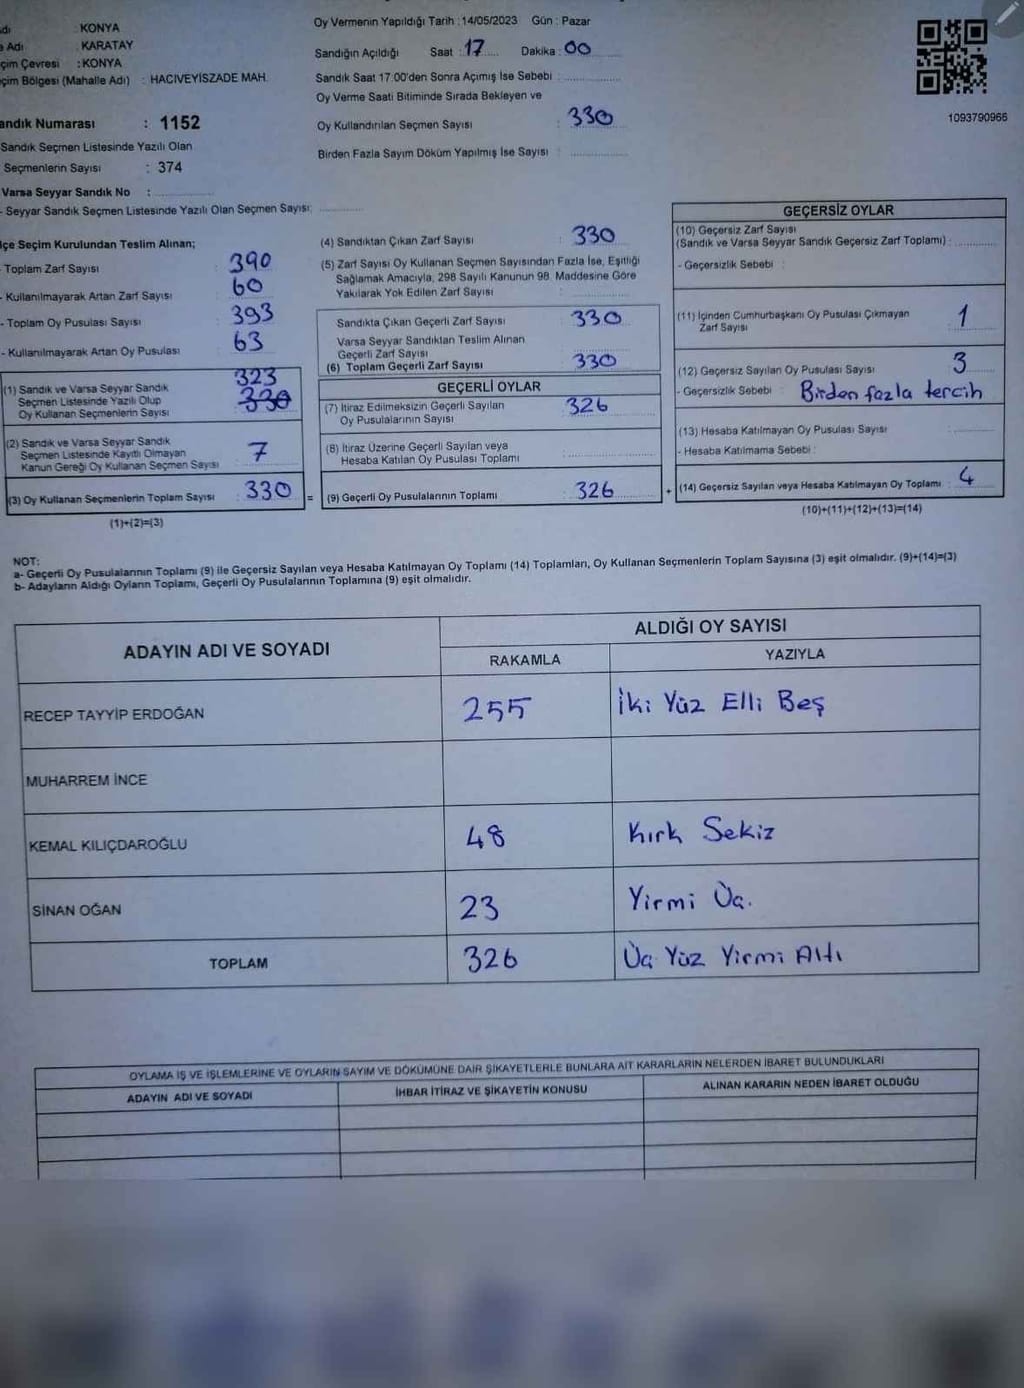 KONYA
KARATAY
çim Çevresi : KONYA
çim Bölgesi (Mahalle Adı) : HACIVEYİSZADE MAH.
andık Numarası : 1152
Sandık Seçmen Listesinde Yazılı Olan
Seçmenlerin Sayısı : 374
Varsa Seyyar Sandık No :
- Seyyar Sandık Seçmen Listesinde Yazılı Olan Seçmen Sayısı:
Oy Vermenin Yapıldığı Tarih : 14/05/2023 Gün : Pazar
Sandığın Açıldığı Saat : 17 Dakika : 00
Sandık Saat 17:00'den Sonra Açımış İse Sebebi :
Oy Verme Saati Bitiminde Sırada Bekleyen ve
Oy Kullandırılan Seçmen Sayısı : 330
Birden Fazla Sayım Döküm Yapılmış İse Sayısı :
1093790966
lçe Seçim Kurulundan Teslim Alınan;
- Toplam Zarf Sayısı : 390
- Kullanılmayarak Artan Zarf Sayısı : 60
- Toplam Oy Pusulası Sayısı : 393
- Kullanılmayarak Artan Oy Pusulası : 63
323
(1) Sandık ve Varsa Seyyar Sandık
Seçmen Listesinde Yazılı Olup
Oy Kullanan Seçmenlerin Sayısı : 330
(2) Sandık ve Varsa Seyyar Sandık
Seçmen Listesinde Kayıtlı Olmayan
Kanun Gereği Oy Kullanan Seçmen Sayısı : 7
(3) Oy Kullanan Seçmenlerin Toplam Sayısı : 330 =
(1)+(2)=(3)
(4) Sandıktan Çıkan Zarf Sayısı : 330
(5) Zarf Sayısı Oy Kullanan Seçmen Sayısından Fazla İse, Eşitliği
Sağlamak Amacıyla, 298 Sayılı Kanunun 98. Maddesine Göre
Yakılarak Yok Edilen Zarf Sayısı :
Sandıkta Çıkan Geçerli Zarf Sayısı : 330
Varsa Seyyar Sandıktan Teslim Alınan
Geçerli Zarf Sayısı :
(6) Toplam Geçerli Zarf Sayısı : 330
GEÇERLİ OYLAR
(7) İtiraz Edilmeksizin Geçerli Sayılan
Oy Pusulalarının Sayısı : 326
(8) İtiraz Üzerine Geçerli Sayılan veya
Hesaba Katılan Oy Pusulası Toplamı :
(9) Geçerli Oy Pusulalarının Toplamı : 326 +
GEÇERSİZ OYLAR
(10) Geçersiz Zarf Sayısı
(Sandık ve Varsa Seyyar Sandık Geçersiz Zarf Toplamı) :
- Geçersizlik Sebebi :
(11) İçinden Cumhurbaşkanı Oy Pusulası Çıkmayan
Zarf Sayısı : 1
(12) Geçersiz Sayılan Oy Pusulası Sayısı : 3
- Geçersizlik Sebebi : Birden fazla tercih
(13) Hesaba Katılmayan Oy Pusulası Sayısı :
- Hesaba Katılmama Sebebi :
(14) Geçersiz Sayılan veya Hesaba Katılmayan Oy Toplamı : 4
(10)+(11)+(12)+(13)=(14)
NOT:
a- Geçerli Oy Pusulalarının Toplamı (9) ile Geçersiz Sayılan veya Hesaba Katılmayan Oy Toplamı (14) Toplamları, Oy Kullanan Seçmenlerin Toplam Sayısına (3) eşit olmalıdır. (9)+(14)=(3)
b- Adayların Aldığı Oyların Toplamı, Geçerli Oy Pusulalarının Toplamına (9) eşit olmalıdır.
ADAYIN ADI VE SOYADI ALDIĞI OY SAYISI
RAKAMLA YAZIYLA
RECEP TAYYİP ERDOĞAN 255 İki Yüz Elli Beş
MUHARREM İNCE
KEMAL KILIÇDAROĞLU 48 Kırk Sekiz
SİNAN OĞAN 23 Yirmi Üç.
TOPLAM 326 Üç Yüz Yirmi Altı
OYLAMA İŞ VE İŞLEMLERİNE VE OYLARIN SAYIM VE DÖKÜMÜNE DAİR ŞİKAYETLERLE BUNLARA AİT KARARLARIN NELERDEN İBARET BULUNDUKLARI
ADAYIN ADI VE SOYADI İHBAR İTİRAZ VE ŞİKAYETİN KONUSU ALINAN KARARIN NEDEN İBARET OLDUĞU